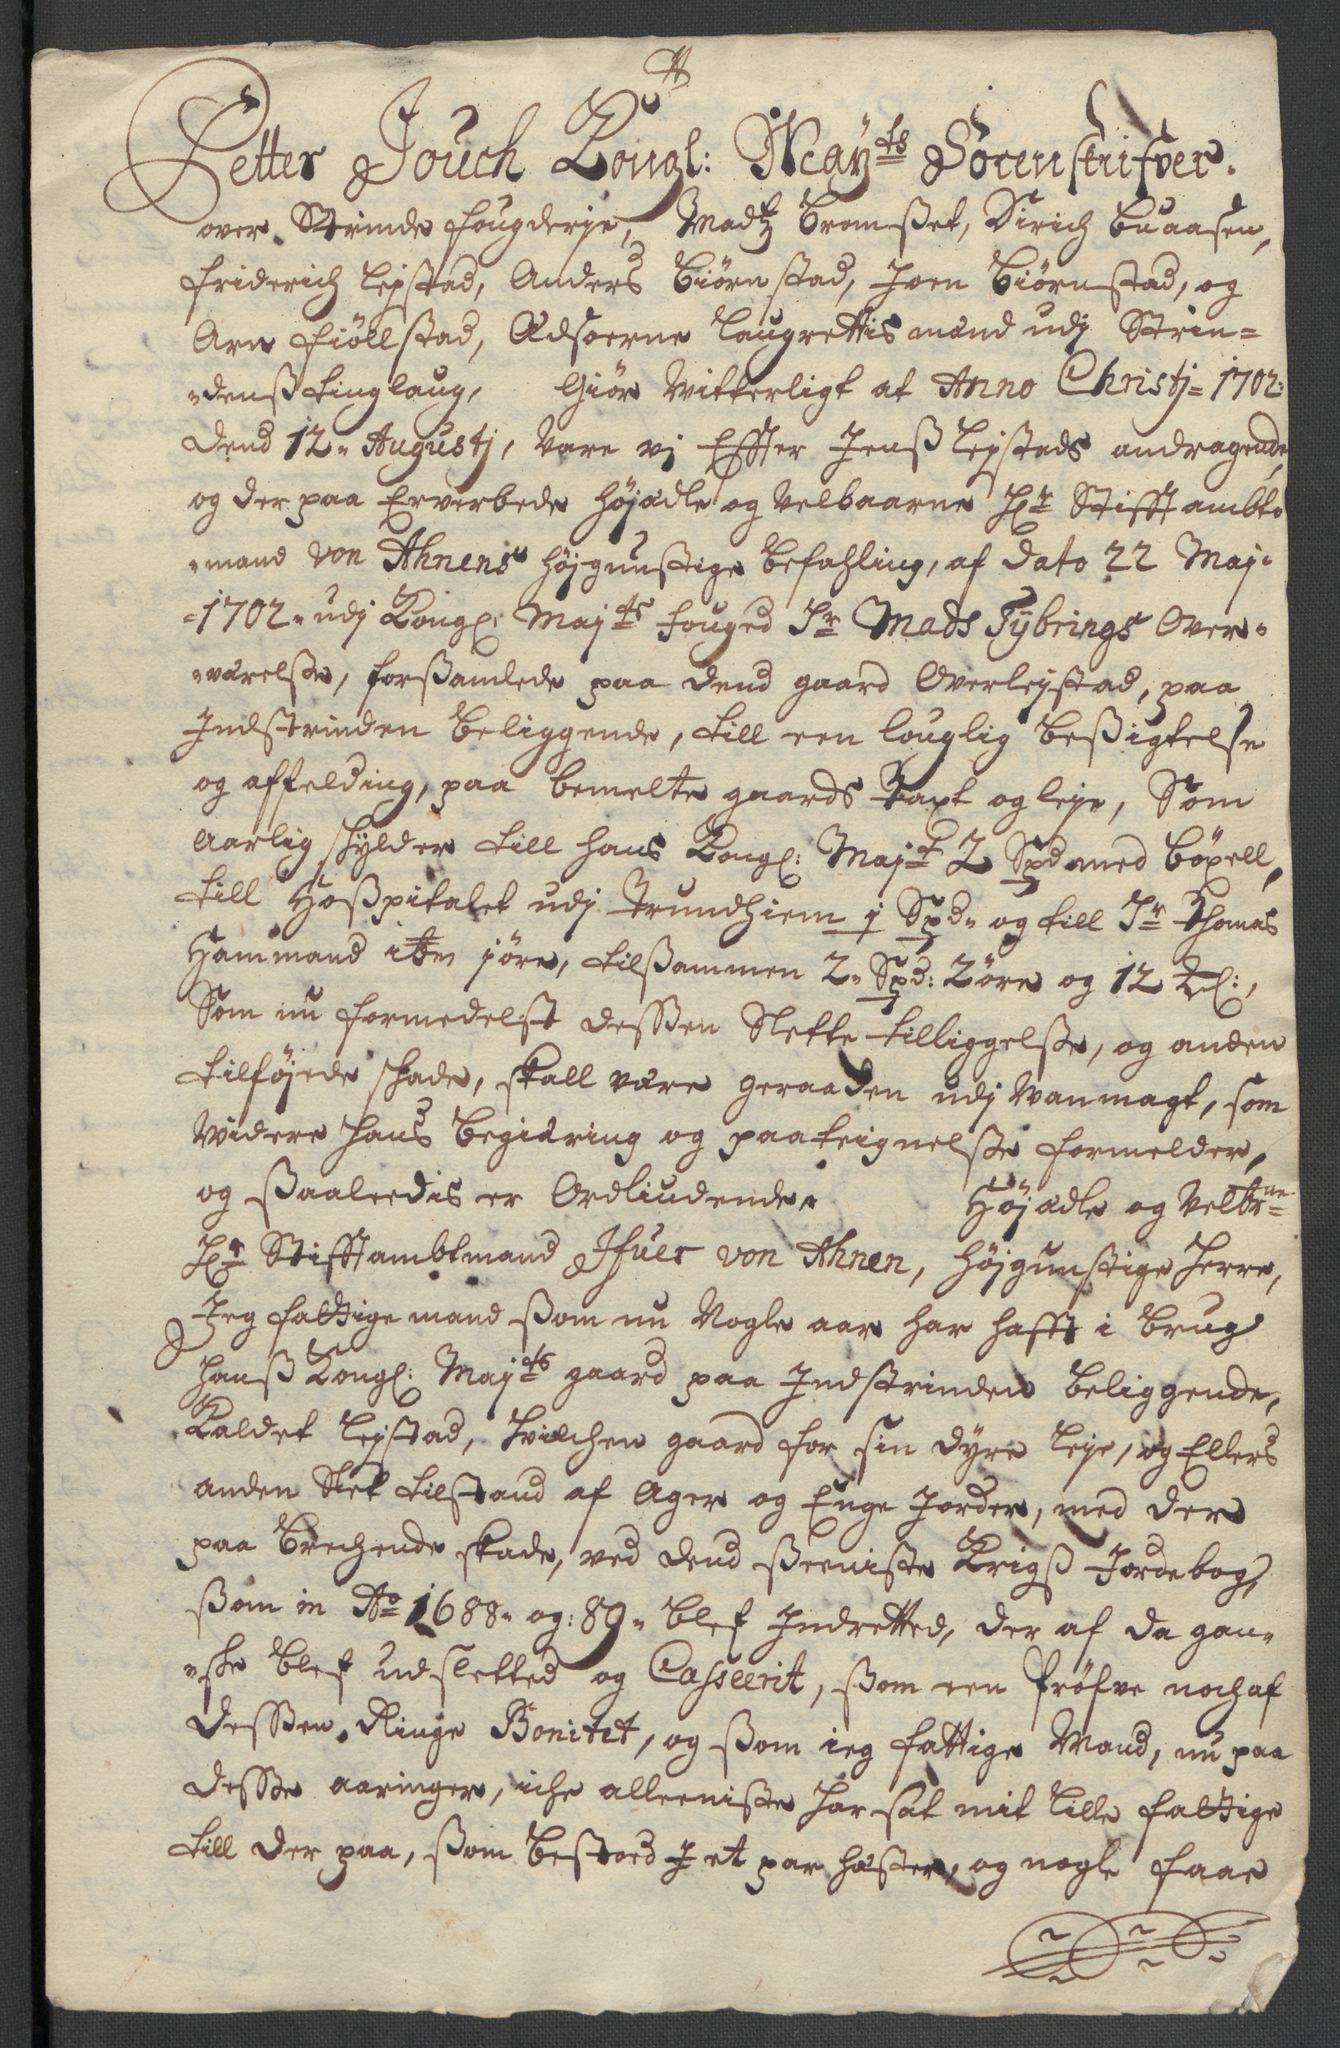 A
Petter Jouch Kongl: Mayts Sorenschrifver.
over Strinde fougderje, Madtz bromset, Dirich buaasen,
friderich lejstad, Anders biörnstad, joen biörnstad, og
Arn fiöllstad, Edsoerne laugrettis mænd udj Strin=
=denß tinglaug, Giör Witterligt at Anno Christj= 1702=
dend 12= Augustj, vare vj Effter Jenß lejstads andragende,
og der paa Erverbede höjædle og velbaarne Hr Stifft ambt=
=mand von Ahnens höjgunstige befahling, af dato 22 Maj=
=1702= udj Kongl: Majts fouged Sr Mads Tybrings Over=
=værelße, forßamlede paa dend gaard Overlejstad, paa
Indstrinden beliggende, till een louglig beßigtelse
og affelding, paa bemelte gaards taxt og leje, Som
aarlig skylder till hans Kongl: Majt 2 Spd med böxell,
till Hoßpitalet udj trundhiem j Spd= og till Sr Thomas
Hammand item jöre, tilßammen 2= Spd: 2öre og 12 Ml:,
Som nu formedelst deßßen Slette tilliggelße, og anden
tilföjede skade, skall være geraaden udj Wanmagt, som
widere hans begiæring og paateignelße formelder,
og ßaaleedis er Ordliudende. Höjædle og Velbrne
Hr Stifftambtmand Ifuer von Ahnen, höjgunstige Herre,
Jeg fattige mand ßom nu Nogle aar har hafft i brug
hanß Kongl: Majts gaard paa Indstrinden beliggende,
Kaldet lejstad, hvilchen gaard for sin dyre leje, og Ellers
anden Slet tilstand af Ager og Enge Jorder, med der
paa brechende skade, ved dend ßeeniste Krigß Jordebog,
ßom in Ao 1688= og: 89= blef Indretted, der af da gan=
=ske blef udsletted og Casseerit, ßom een Pröfve noch af
deßßen Ringe Bonitet, og ßom ieg fattige Mand, nu paa
deßße aaringer, iche alleeniste har sat mit lille fattige
till der paa, ßom bestoed J et par hæster, og nogle faar